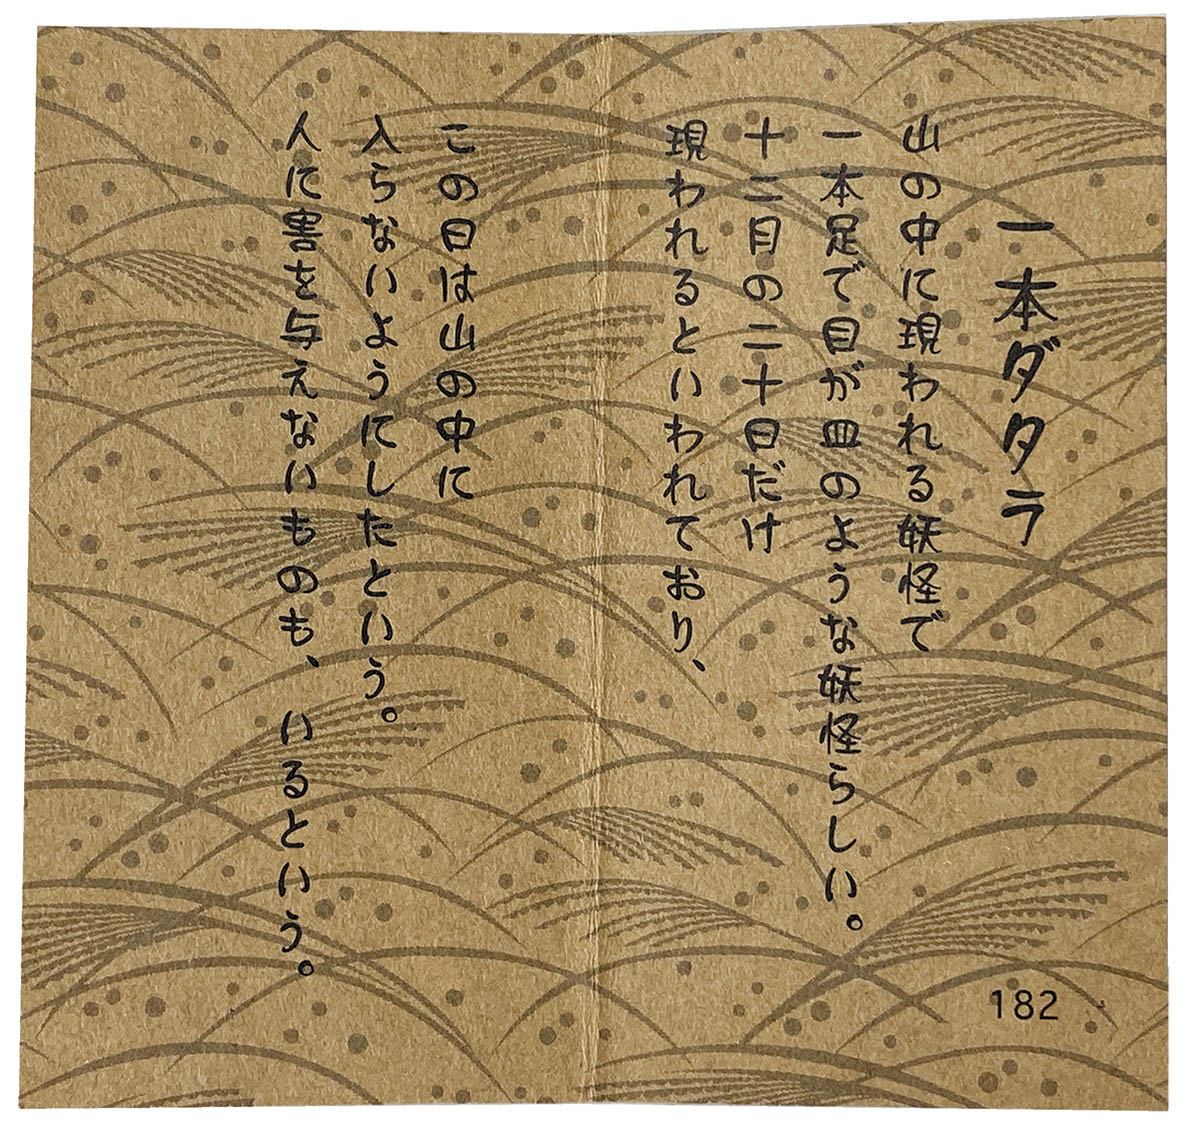 一本ダタラ
山の中に現われる妖怪で
一本足で目が皿のような妖怪らしい。
十二月の二十日だけ
現われるといわれており、
この日は山の中に
入らないようにしたという。
人に害を与えないものも、いるという。
182